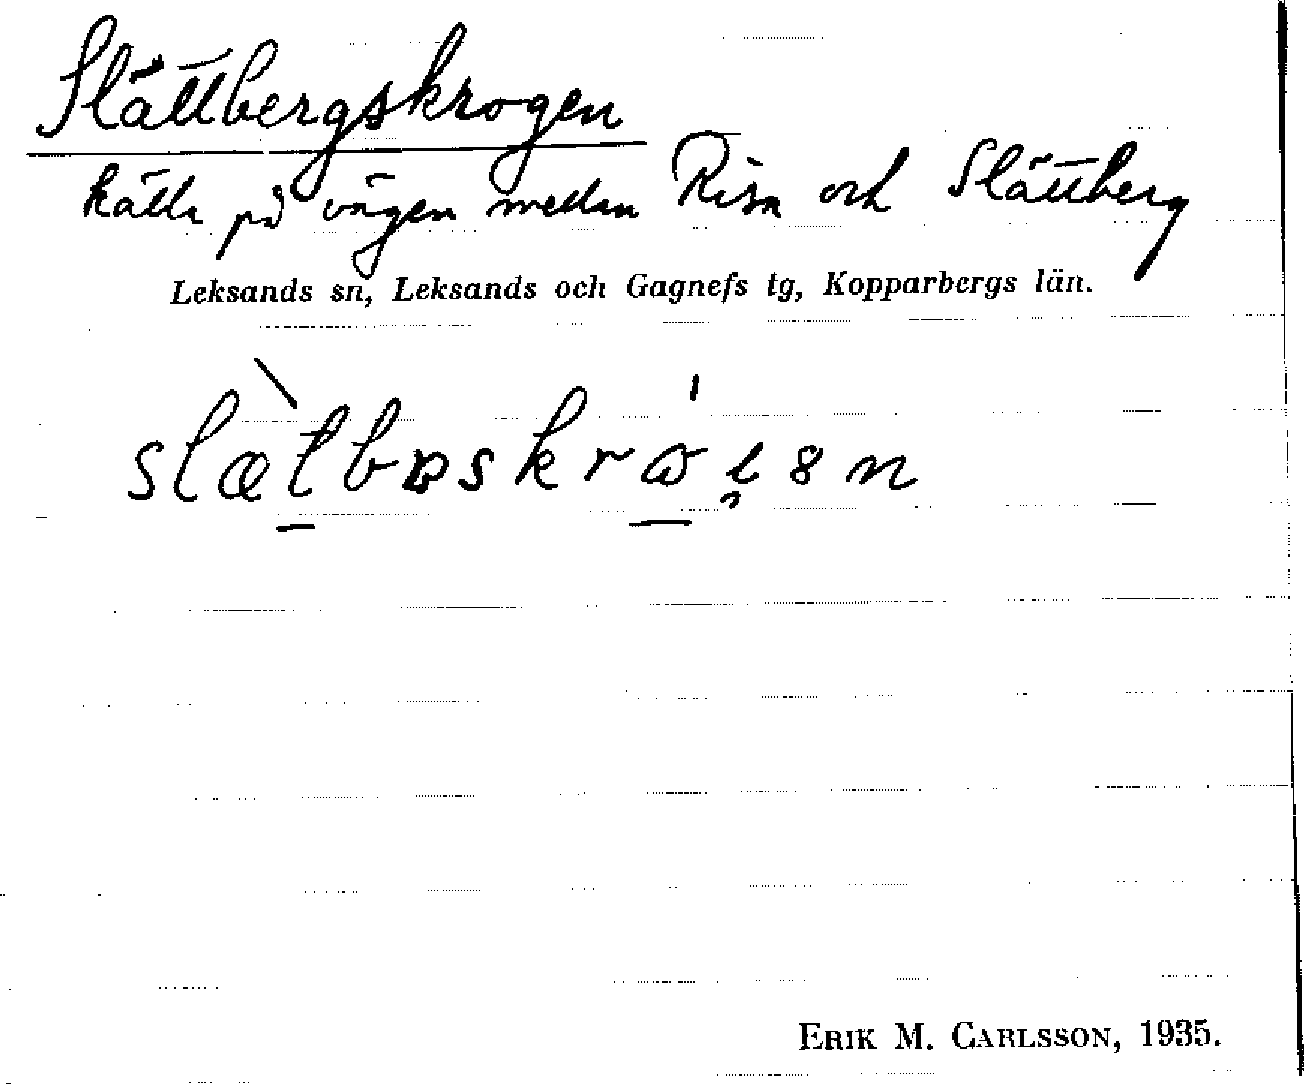 Slättbergskrogen
källa på vägen mellan Risa och Slättberg
Leksands sn, Leksands och Gagnefs tg, Kopparbergs län.
ERIK M. CARLSSON, 1935.